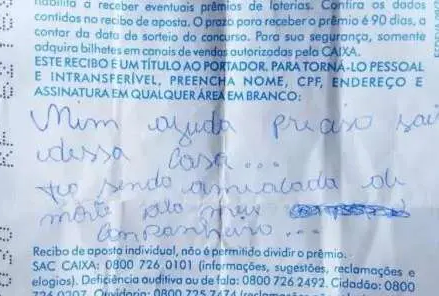 habilita a receber eventuais prêmios de loterias. Confira os dados
contidos no recibo de aposta. O prazo para receber o prêmio é 90 dias, a
contar da data de sorteio do concurso. Para sua segurança, somente
adquira bilhetes em canais de vendas autorizados pela CAIXA.
ESTE RECIBO É UM TÍTULO AO PORTADOR. PARA TORNÁ-LO PESSOAL
E INTRANSFERÍVEL, PREENCHA NOME, CPF, ENDEREÇO E
ASSINATURA EM QUALQUER ÁREA EM BRANCO:
Mim ajuda preciso sair
dessa Casa...
to sendo ameaçada de
morte pelo meu
Companheiro...
Recibo de aposta individual, não é permitido dividir o prêmio.
SAC CAIXA: 0800 726 0101 (informações, sugestões, reclamações e
elogios). Deficiência auditiva ou de fala: 0800 726 2492. Cidadão: 0800
726 0207. Ouvidoria: 0800 725 7474